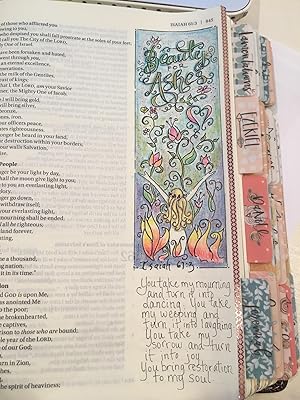 of those who afflicted you
owing to you,
who despised you shall fall prostrate at the soles of your feet,
call you The City of the LORD,
ly One of Israel.
u have been forsaken and hated,
went through you,
an eternal excellence,
generations.
the milk of the Gentiles,
breast of kings;
hat I, the LORD, am your Savior
mer, the Mighty One of Jacob.
I will bring gold,
bring silver,
bronze,
ones, iron.
our officers peace,
rates righteousness.
nger be heard in your land,
or destruction within your borders;
your walls Salvation,
ise.
People
nger be your light by day,
hall the moon give light to you;
to you an everlasting light,
lory.
nger go down,
withdraw itself;
our everlasting light,
mourning shall be ended.
all be righteous;
land forever,
nting,
e a thousand,
ng nation.
it in its time."
God is upon Me,
has anointed Me
to the poor;
brokenhearted,
captives,
prison to those who are bound;
ble year of the LORD,
of our God;
n,
urn in Zion,
hes,
the spirit of heaviness;
ISAIAH 61:3 | 845
Beauty
for
Ashes
Isaiah 61:3
You take my mourning
and turn it into
dancing. You take
my weeping and
turn it into laughing.
You take my
sorrow and turn
it into joy.
You bring restoration
to my soul.